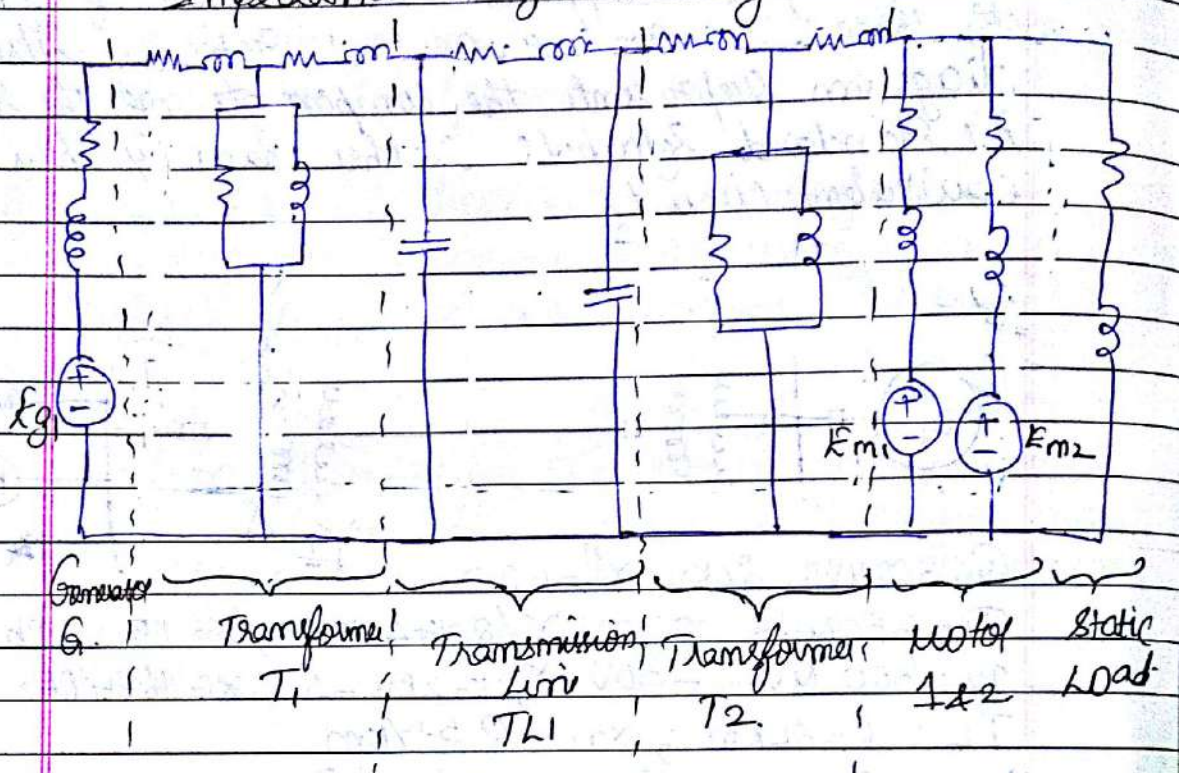 Eg1
+
-
Em1
+
-
+
-
Em2
Generator
G.
Transformer
T1
Transmission
Line
TL1
Transformer
T2.
Motor
1&2
Static
Load.